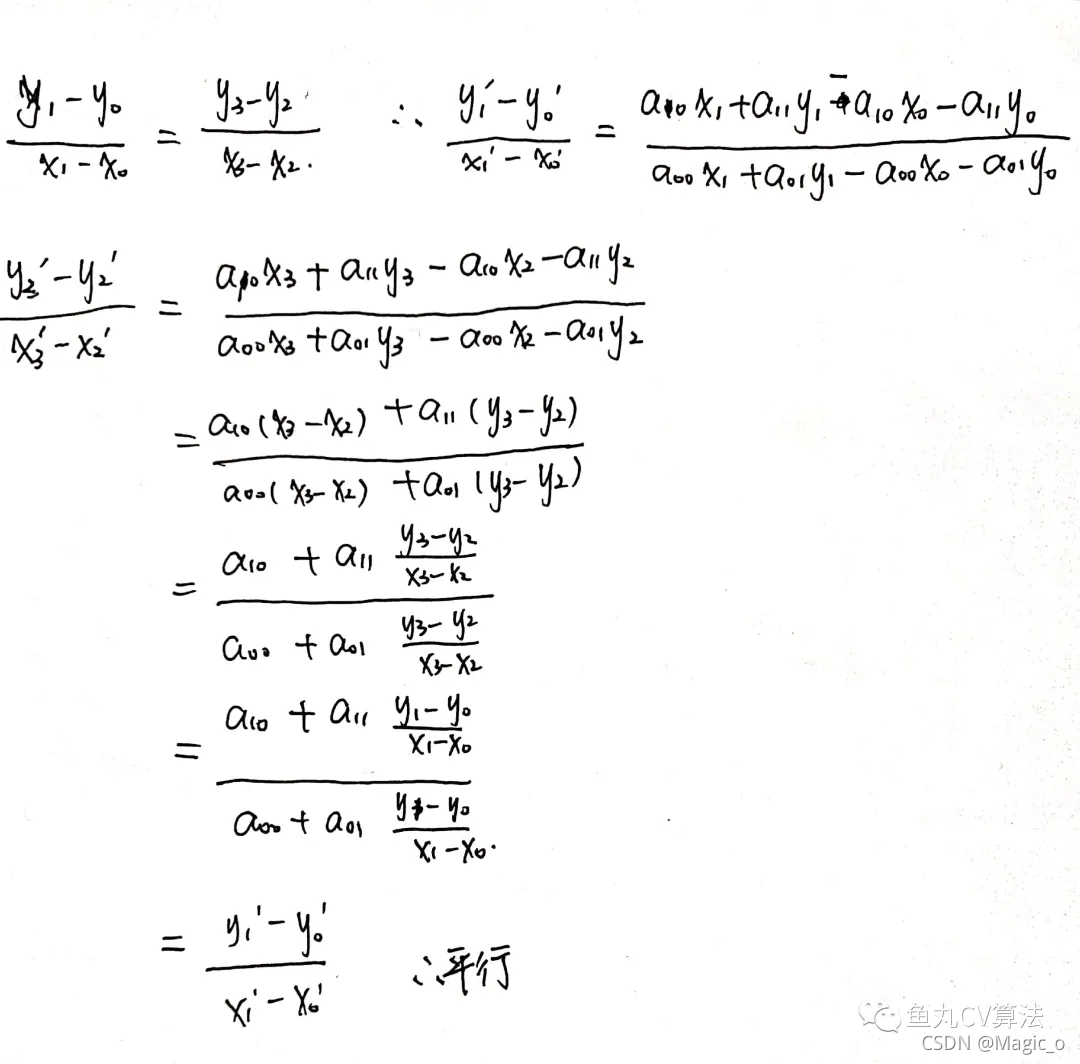 (y₁ - y₀)/(x₁ - x₀) = (y₃ - y₂)/(x₃ - x₂). ∴ (y₁' - y₀')/(x₁' - x₀') = (a₁₀x₁ + a₁₁y₁ - a₁₀x₀ - a₁₁y₀)/(a₀₀x₁ + a₀₁y₁ - a₀₀x₀ - a₀₁y₀)
(y₃' - y₂')/(x₃' - x₂') = (a₁₀x₃ + a₁₁y₃ - a₁₀x₂ - a₁₁y₂)/(a₀₀x₃ + a₀₁y₃ - a₀₀x₂ - a₀₁y₂)
= (a₁₀(x₃ - x₂) + a₁₁(y₃ - y₂))/(a₀₀(x₃ - x₂) + a₀₁(y₃ - y₂))
= (a₁₀ + a₁₁ (y₃ - y₂)/(x₃ - x₂))/(a₀₀ + a₀₁ (y₃ - y₂)/(x₃ - x₂))
= (a₁₀ + a₁₁ (y₁ - y₀)/(x₁ - x₀))/(a₀₀ + a₀₁ (y₁ - y₀)/(x₁ - x₀)).
= (y₁' - y₀')/(x₁' - x₀') ∴平行
鱼丸CV算法
CSDN @Magic_o